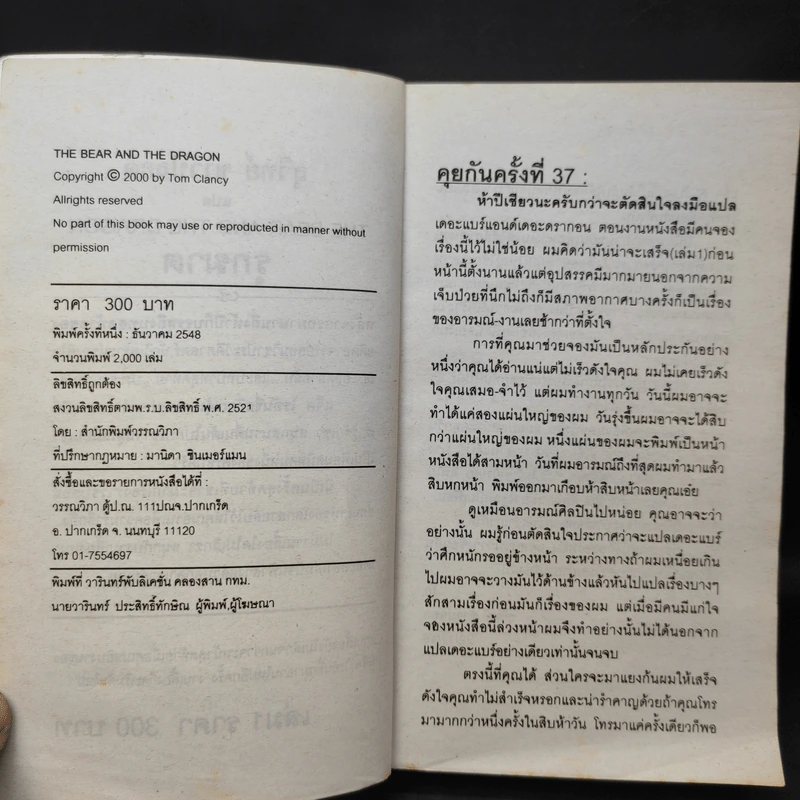 THE BEAR AND THE DRAGON
Copyright © 2000 by Tom Clancy
Allrights reserved
No part of this book may use or reproduced in manner without
permission
ราคา 300 บาท
พิมพ์ครั้งที่หนึ่ง : ธันวาคม 2548
จำนวนพิมพ์ 2,000 เล่ม
ลิขสิทธิ์ถูกต้อง
สงวนลิขสิทธิ์ตามพ.ร.บ.ลิขสิทธิ์ พ.ศ. 2521
โดย : สำนักพิมพ์วรรณวิภา
ที่ปรึกษากฎหมาย : มานิดา ซินเมอร์แมน
สั่งซื้อและขอรายการหนังสือได้ที่ :
วรรณวิภา ตู้ป.ณ. 111ปณจ.ปากเกร็ด
อ. ปากเกร็ด จ. นนทบุรี 11120
โทร 01-7554697
พิมพ์ที่ วารินทร์พับลิเคชั่น คลองสาน กทม.
นายวารินทร์ ประสิทธิ์ทักษิณ ผู้พิมพ์,ผู้โฆษณา
คุยกันครั้งที่ 37 :
ห้าปีเชียวนะครับกว่าจะตัดสินใจลงมือแปล
เดอะแบร์แอนด์เดอะดรากอน ตอนงานหนังสือมีคนจอง
เรื่องนี้ไว้ไม่ใช่น้อย ผมคิดว่ามันน่าจะเสร็จ(เล่ม1)ก่อน
หน้านี้ตั้งนานแล้วแต่อุปสรรคมีมากมายนอกจากความ
เจ็บป่วยที่นึกไม่ถึงก็มีสภาพอากาศบางครั้งก็เป็นเรื่อง
ของอารมณ์-งานเลยช้ากว่าที่ตั้งใจ
การที่คุณมาช่วยจองมันเป็นหลักประกันอย่าง
หนึ่งว่าคุณได้อ่านแน่แต่ไม่เร็วดังใจคุณ ผมไม่เคยเร็วดัง
ใจคุณเสมอ-จำไว้ แต่ผมทำงานทุกวัน วันนี้ผมอาจจะ
ทำได้แค่สองแผ่นใหญ่ของผม วันรุ่งขึ้นผมอาจจะได้สิบ
กว่าแผ่นใหญ่ของผม หนึ่งแผ่นของผมจะพิมพ์เป็นหน้า
หนังสือได้สามหน้า วันที่ผมอารมณ์ถึงที่สุดผมทำมาแล้ว
สิบหกหน้า พิมพ์ออกมาเกือบห้าสิบหน้าเลยคุณเอ๋ย
ดูเหมือนอารมณ์ศิลปินไปหน่อย คุณอาจจะว่า
อย่างนั้น ผมรู้ก่อนตัดสินใจประกาศว่าจะแปลเดอะแบร์
ว่าศึกหนักรออยู่ข้างหน้า ระหว่างทางถ้าผมเหนื่อยเกิน
ไปผมอาจจะวางมันไว้ด้านข้างแล้วหันไปแปลเรื่องบางๆ
สักสามเรื่องก่อนมันก็เรื่องของผม แต่เมื่อมีคนมีแก่ใจ
จองหนังสือนี้ล่วงหน้าผมจึงทำอย่างนั้นไม่ได้นอกจาก
แปลเดอะแบร์อย่างเดียวเท่านั้นจนจบ
ตรงนี้ที่คุณได้ ส่วนใครจะมาแยงก้นผมให้เสร็จ
ดังใจคุณทำไม่สำเร็จหรอกและน่ารำคาญด้วยถ้าคุณโทร
มามากกว่าหนึ่งครั้งในสิบห้าวัน โทรมาแค่ครั้งเดียวก็พอ